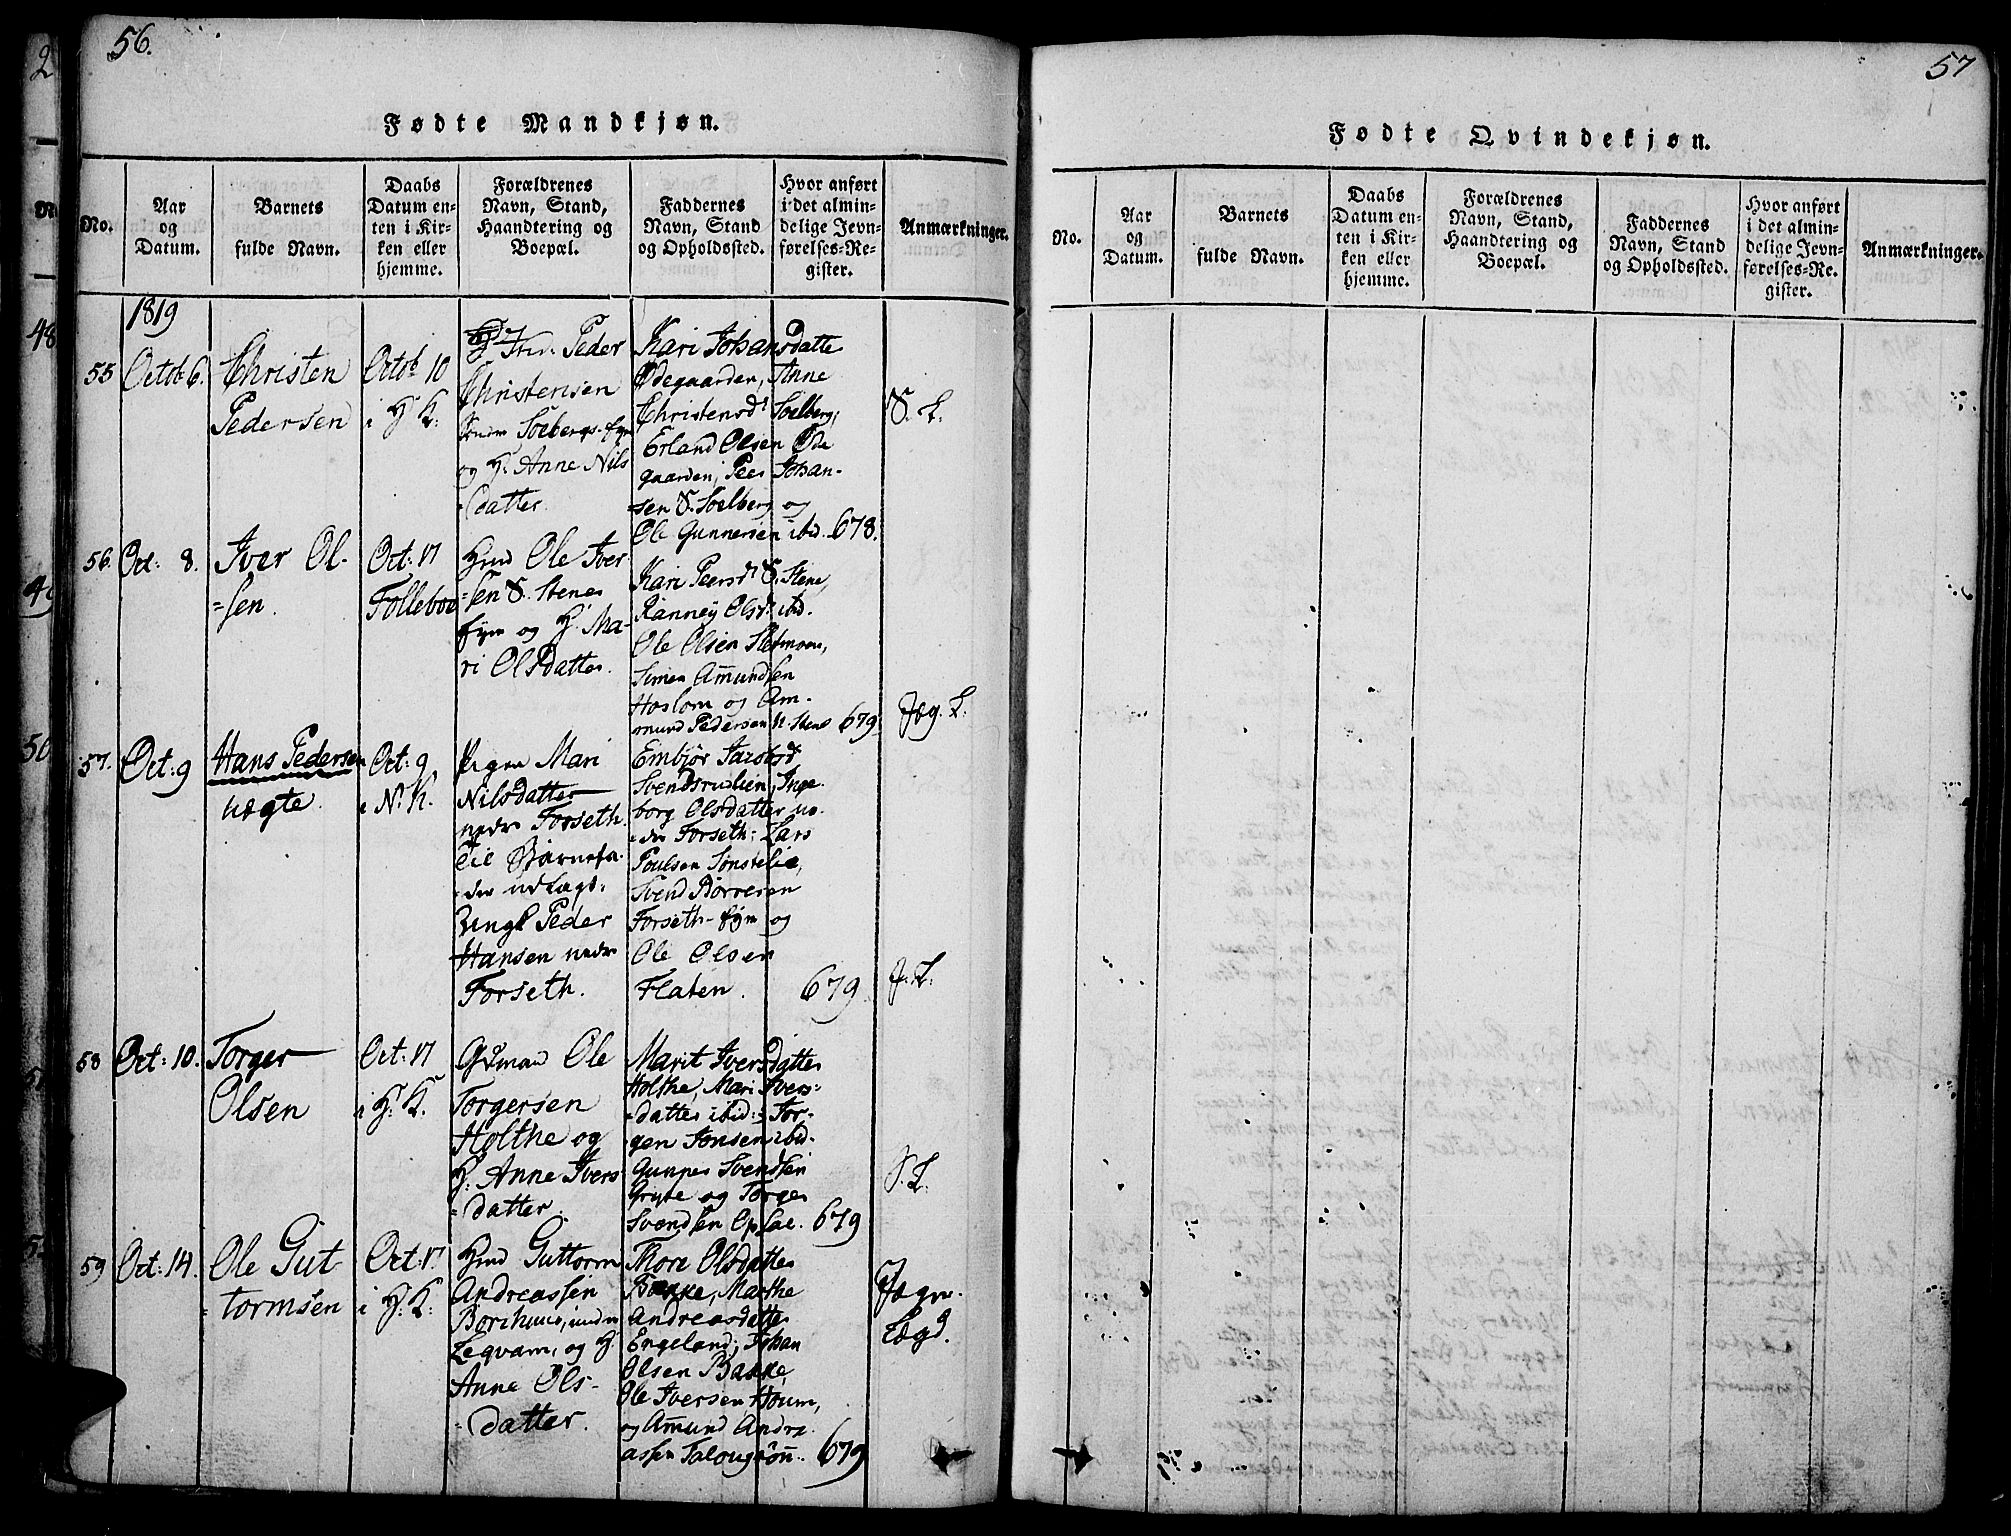 56.
Fødte Mandkjøn.
No.
Aar
og
Datum.
Barnets
fulde Navn.
Daabs
Datum en-
ten i Kir-
ken eller
hjemme.
Forældrenes
Navn, Stand,
Haandtering og
Boepæl.
Faddernes
Navn, Stand
og Opholdssted.
Hvor anført
i det almin-
delige Jevn-
førelses-Re-
gister.
Anmærkninger.
1819
55
Octob: 6.
Christen
Pedersen
Octob: 10
i H. K:
Peder
Christensen
Soebergs-
og H. Anne Nils
-datter.
Kari Johansdatte
Ødegaarden, Anne
Christensd: Soelberg,
Erland Olsen Øde
gaarden, Peer Johan-
sen S. Soelberg og
Ole Gunnersen ibid.
678.
S. L.
56.
Oct: 8.
Iver Ol-
=sen.
Oct: 17
Folleboe
Ole Iver
=sen S. Stenes
Eyer og H. Ma-
ri Olsdatter.
Kari Peersd: S. Stene,
Ranney Olsd: ibd.
Ole Olsen Sletmoen,
Simen Amundsen
Hoslom og Am-
mund Pedersen N. Stene
679.
Jæg. L.
57.
Oct: 9
Hans Pedersen
uægte.
Oct: 9
i N. K.
Pigen Mari
Nilsdatter
nedre Forseth.
Til Barnefa-
der udlagt:
Ungk Peder
Hansen nedre
Forseth.
Embjør
Svendsrudlien, Inge-
borg Olsdatter ne-
dre Forseth: Lars
Poulsen Sønstelie,
Svend Børresen
Forseth-Eyer og
Ole Olsen
Flaten.
679
J. L.
58
Oct: 10.
Torger
Olsen
Oct: 17
i H. K.
Gdmand Ole
Torgersen
Holthe og
H. Anne Ivers-
=datter.
Marit Iversdatter
Holthe, Mari Ivers-
=datter ibid: Tor-
gen Jonsen ibid.
Gunner Svendsen
Gryte og Torger
Svendsen Opsal.
679
S. L.
59
Oct: 14.
Ole Gut-
=tormsen
Oct: 17
i H. K:
Guttorm
Andreassen
Borihuus, under
Legvam, og H.
Anne Ols-
=datter.
Thore Olsdatter
Bakke, Marthe
Andreasdatter
Engeland, Johan
Olsen Bakke,
Ole Iversen Houm,
og Amund Andre
assen
679
Jægor.
Lægd.
57
Fødte Qvindekjøn.
No.
Aar
og
Datum.
Barnets
fulde Navn.
Daabs
Datum en-
ten i Kir-
ken eller
hjemme.
Forældrenes
Navn, Stand,
Haandtering og
Boepæl.
Faddernes
Navn, Stand
og Opholdssted.
Hvor anført
i det almin-
delige Jevn-
førelses-Re-
gister.
Anmærkninger.